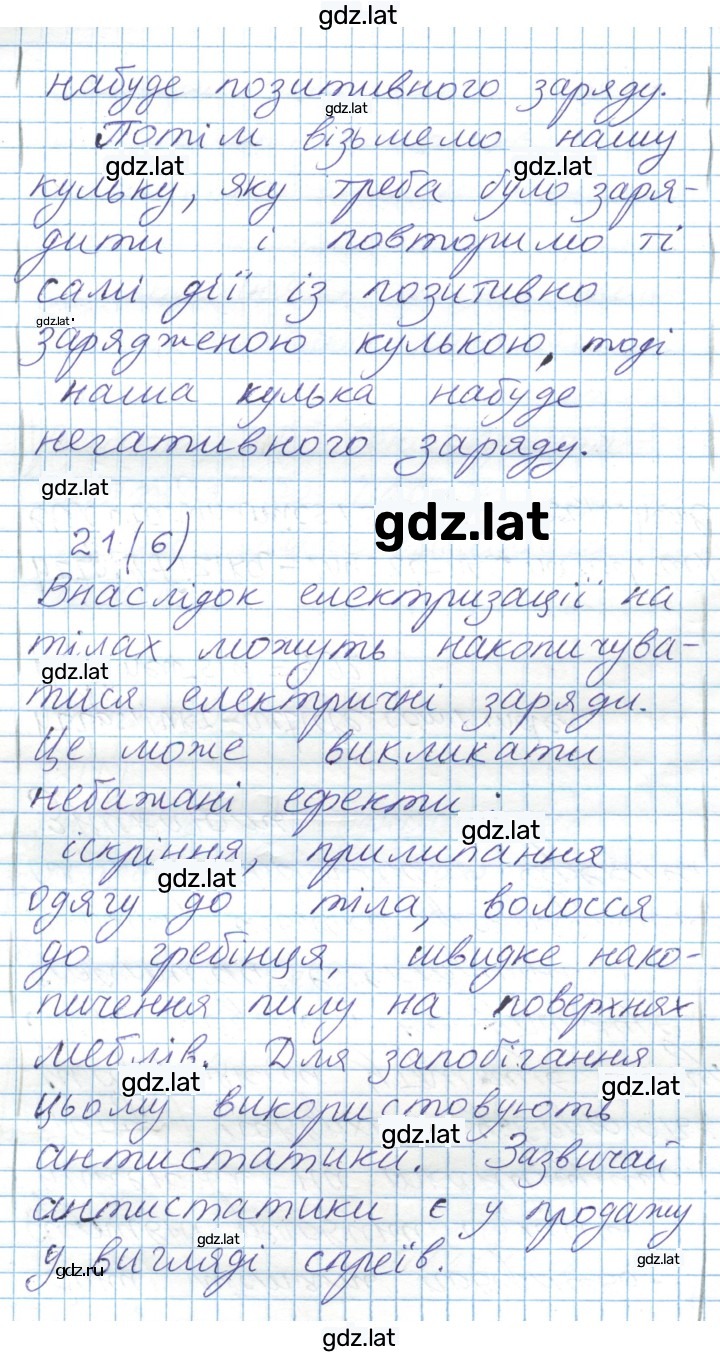 gdz.lat
набуде позитивного заряду.
gdz.lat
Потім візьмемо нашу
gdz.lat gdz.lat
кульку, яку треба було заря-
дити і повторимо ті
самі дії із позитивно
gdz.lat
зарядженою кулькою, тоді
наша кулька набуде
негативного заряду.
gdz.lat
gdz.lat
21(6)
Внаслідок електризації на
тілах можуть накопичува-
gdz.lat
тися електричні заряди.
Це може викликати
небажані ефекти:
gdz.lat
іскріння, прилипання
gdz.lat
одягу до тіла, волосся
до гребінця, швидке нако-
пичення пилу на поверхнях
меблів. Для запобігання
gdz.lat gdz.lat
цьому використовують
gdz.lat
антистатики. Зазвичай
антистатики є у продажу
gdz.lat
у вигляді спреїв.
gdz.lat
gdz.ru
gdz.lat